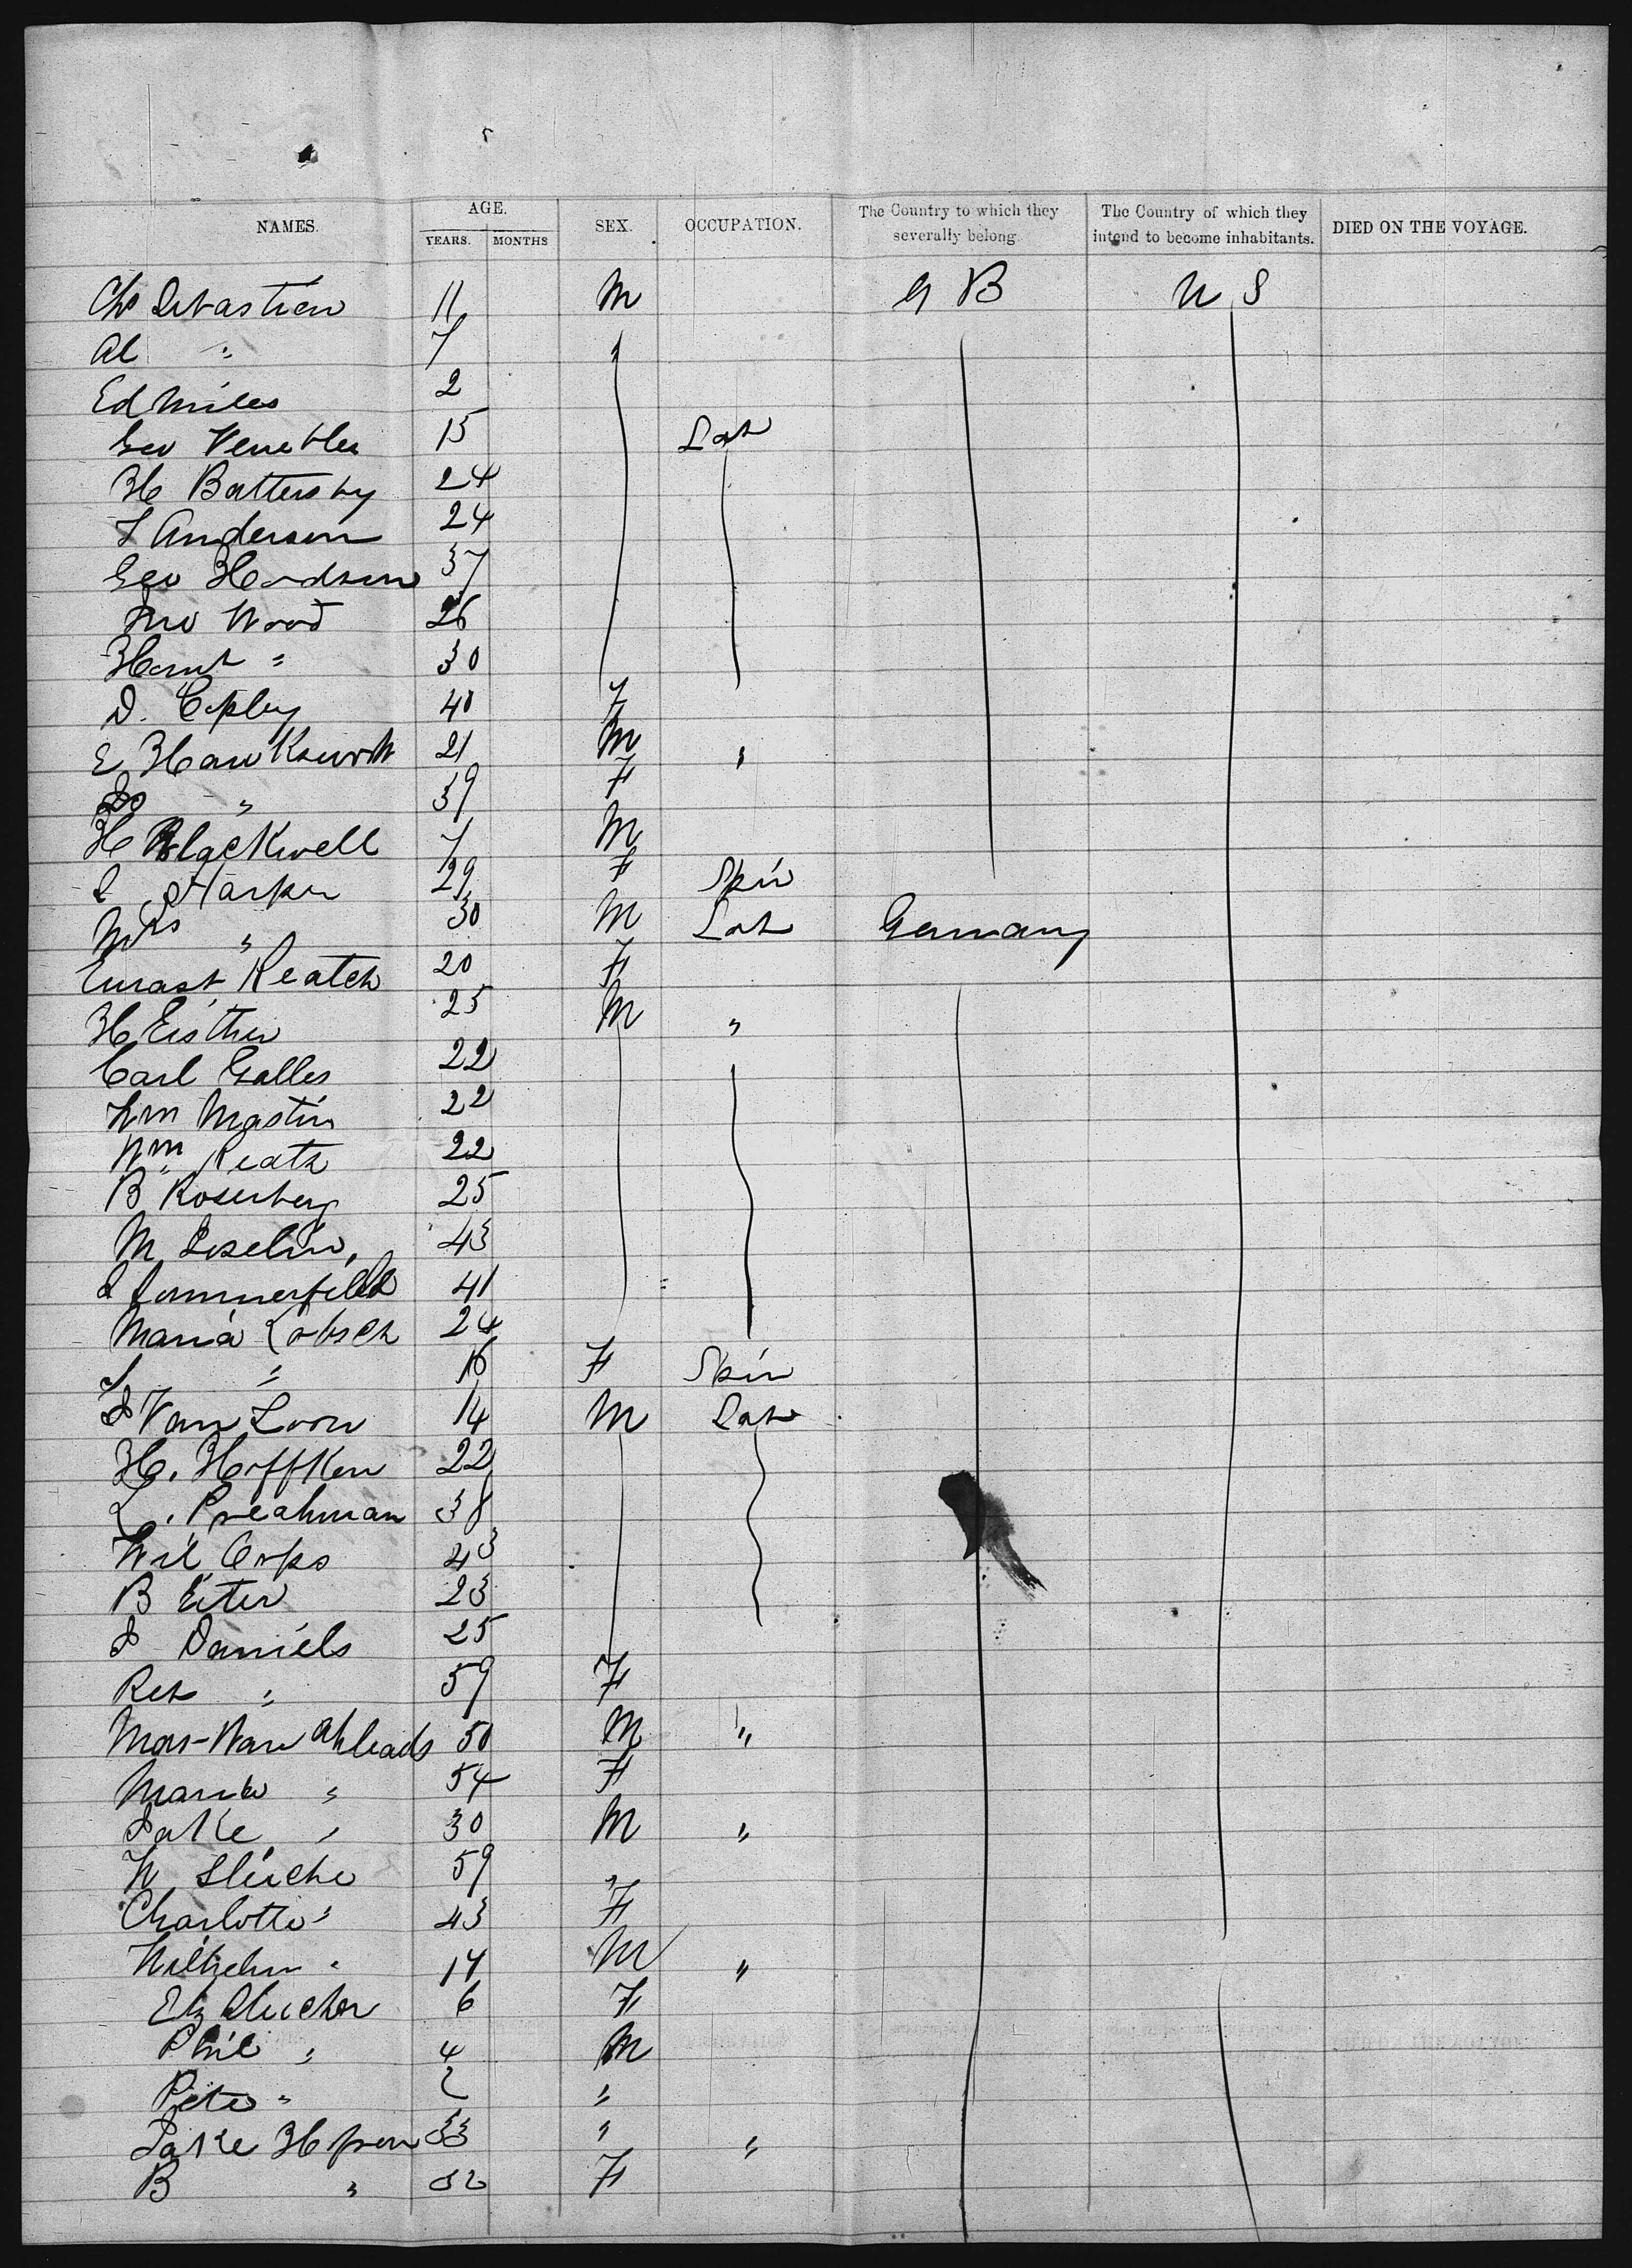 NAMES. AGE. YEARS. MONTHS SEX. OCCUPATION. The Country to which they severally belong. The Country of which they intend to become inhabitants. DIED ON THE VOYAGE.
Chs Sebastien 11 M G B U S
Al " 7 "
Ed Miles 2
Geo Venebles 15 Lab
H Battersby 24
T Anderson 24
Geo Hodson 37
Jno Wood 26
Hant " 30
D. Copley 40 F
E Hawksworth 21 M "
" 39 F
H Blackwell 7 M
S Harker 29 F Spin
Mrs " 30 M Lab Germany
Reatch 20 F
H Eisther 25 M "
Carl Galles 22
Wm Mastin 22
Wm Reatz 22
B Rosenberg 25
M Joselin, 43
S Sommerfeld 41
Maria Lobsch 24
" 16 F Spin
J Van Loon 14 M Lab
H. Hoffken 22
L. Preahman 38
Wil Orps 43
B Eiter 23
J Daniels 25
Reb " 59 F
Ahleads 50 M "
Maria " 54 F
Jake " 30 M "
W Sleiche 59 "
Charlotte " 43 F
Wilhelm " 14 M "
Elz Sleicher 6 F
Phil " 4 M
Peter " 2 "
Jake 33 " "
B " 32 F